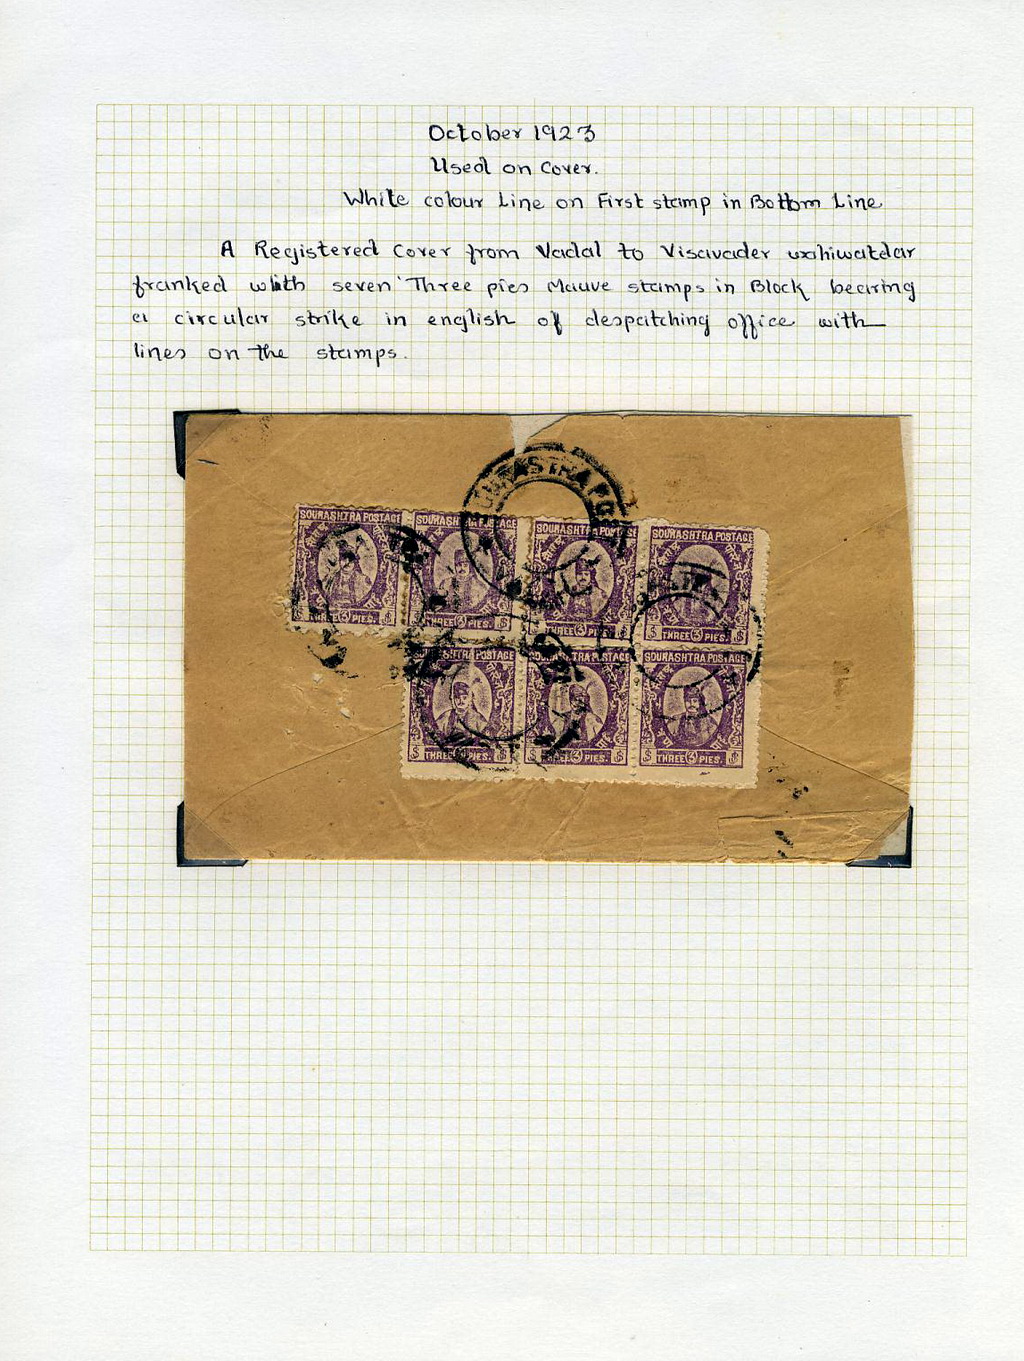 October 1923
Used on Cover.
White colour Line on First stamp in Bottom Line
A Registered Cover from Vadal to Visavader wahiwatdar
franked with seven Three pies Mauve stamps in Block bearing
a circular strike in english of despatching office with
lines on the stamps.
SOURASHTRA POSTAGE SOURASHTRA POSTAGE SOURASHTRA POSTAGE
THREE 3 PIES. THREE 3 PIES. THREE 3 PIES. THREE 3 PIES.
SOURASHTRA POSTAGE
THREE 3 PIES. THREE 3 PIES. THREE 3 PIES.